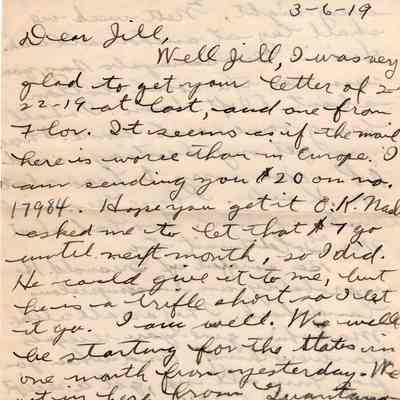 3-6-19
Dear Jill,
Well Jill, I was very
glad to get your letter of 2-
22-19 at last, and one from
Flor. It seems as if the mail
here is worse than in Europe. I
am sending you $20 on no.
17984. Hope you get it O.K. Nad
asked me to let that $7 go
until next month, so I did.
He could give it to me, but
he is a trifle short so I let
it go. I am well. We will
be starting for the States in
one month from yesterday. We
in here from Guantana